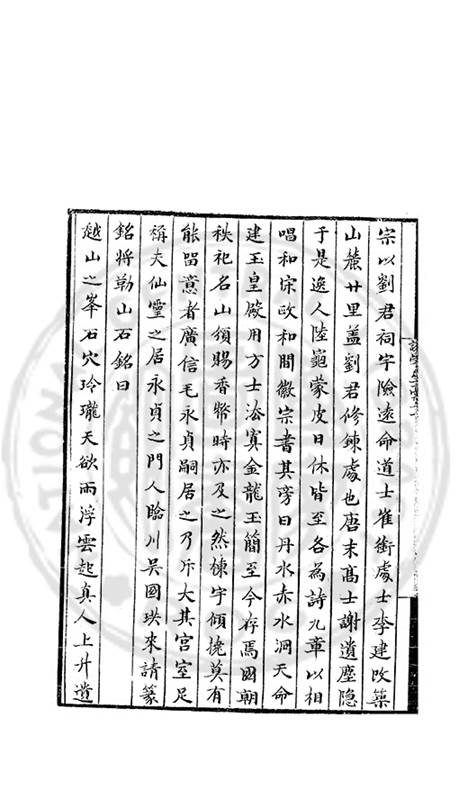 宗以劉君祠宇險遠命道士崔衝處士李建改築
山麓廿里蓋劉君修鍊處也唐末高士謝遺塵隐
于是逸人陸龜蒙皮日休皆至各為詩九章以相
唱和宋政和間徽宗書其旁曰丹水赤水洞天命
建玉皇殿用方士法寘金龍玉簡至今存焉國朝
秩祀名山頒賜香幣時亦及之然棟宇傾撓莫有
能留意者廣信毛永貞嗣居之乃斥大其宮室足
稱夫仙靈之居永貞之門人臨川吳國珙來請篆
銘將勒山石銘曰
越山之峯石穴玲瓏天欲雨浮雲起真人上升遺